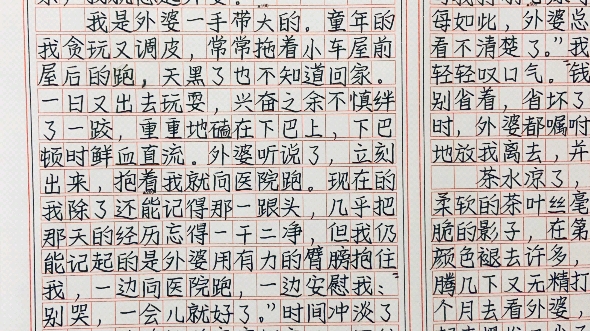 我是外婆一手带大的。童年的
我贪玩又调皮，常常拖着小车屋前
屋后的跑，天黑了也不知道回家。
一日又出去玩耍，兴奋之余不慎绊
了一跤，重重地磕在下巴上，下巴
顿时鲜血直流。外婆听说了，立刻
出来，抱着我就向医院跑。现在的
我除了还能记得那一跟头，几乎把
那天的经历忘得一干二净，但我仍
能记起的是外婆用有力的臂膀抱住
我，一边向医院跑，一边安慰我：
别哭，一会儿就好了。”时间冲淡了
每如此，外婆总
看不清楚了。”我
轻轻叹口气。钱
别省着，省坏了
时，外婆都嘱咐
地放我离去，并
茶水凉了，
柔软的茶叶丝毫
脆的影子，在第
颜色褪去许多，
腾几下又无精打
个月去看外婆，